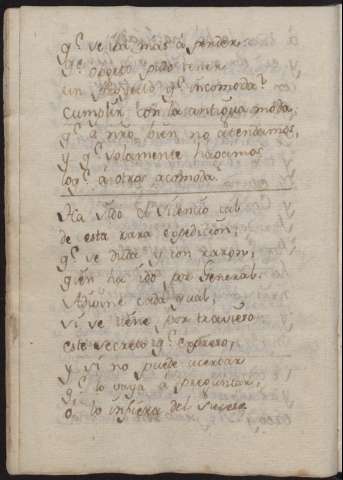 q.ᵉ se va mas á perder,
q.ᵉ objeto pudo tener
un Proyecto q.ᵉ incomoda?
Cumplir con la antigua moda,
q.ᵉ á nr̃o bien no atendamos,
y q.ᵉ solamente hagamos
lo q.ᵉ á otros acomoda.
Ha sido el silencio tal
de esta rara expedicion,
q.ᵉ se duda y con razon,
quien ha ido por General.
Adivine cada qual,
si se tiene por travieso
este secreto q.ᵉ expreso,
y si no puede acertar
q.ᵉ lo vaya á preguntar,
ó lo infiera del suceso